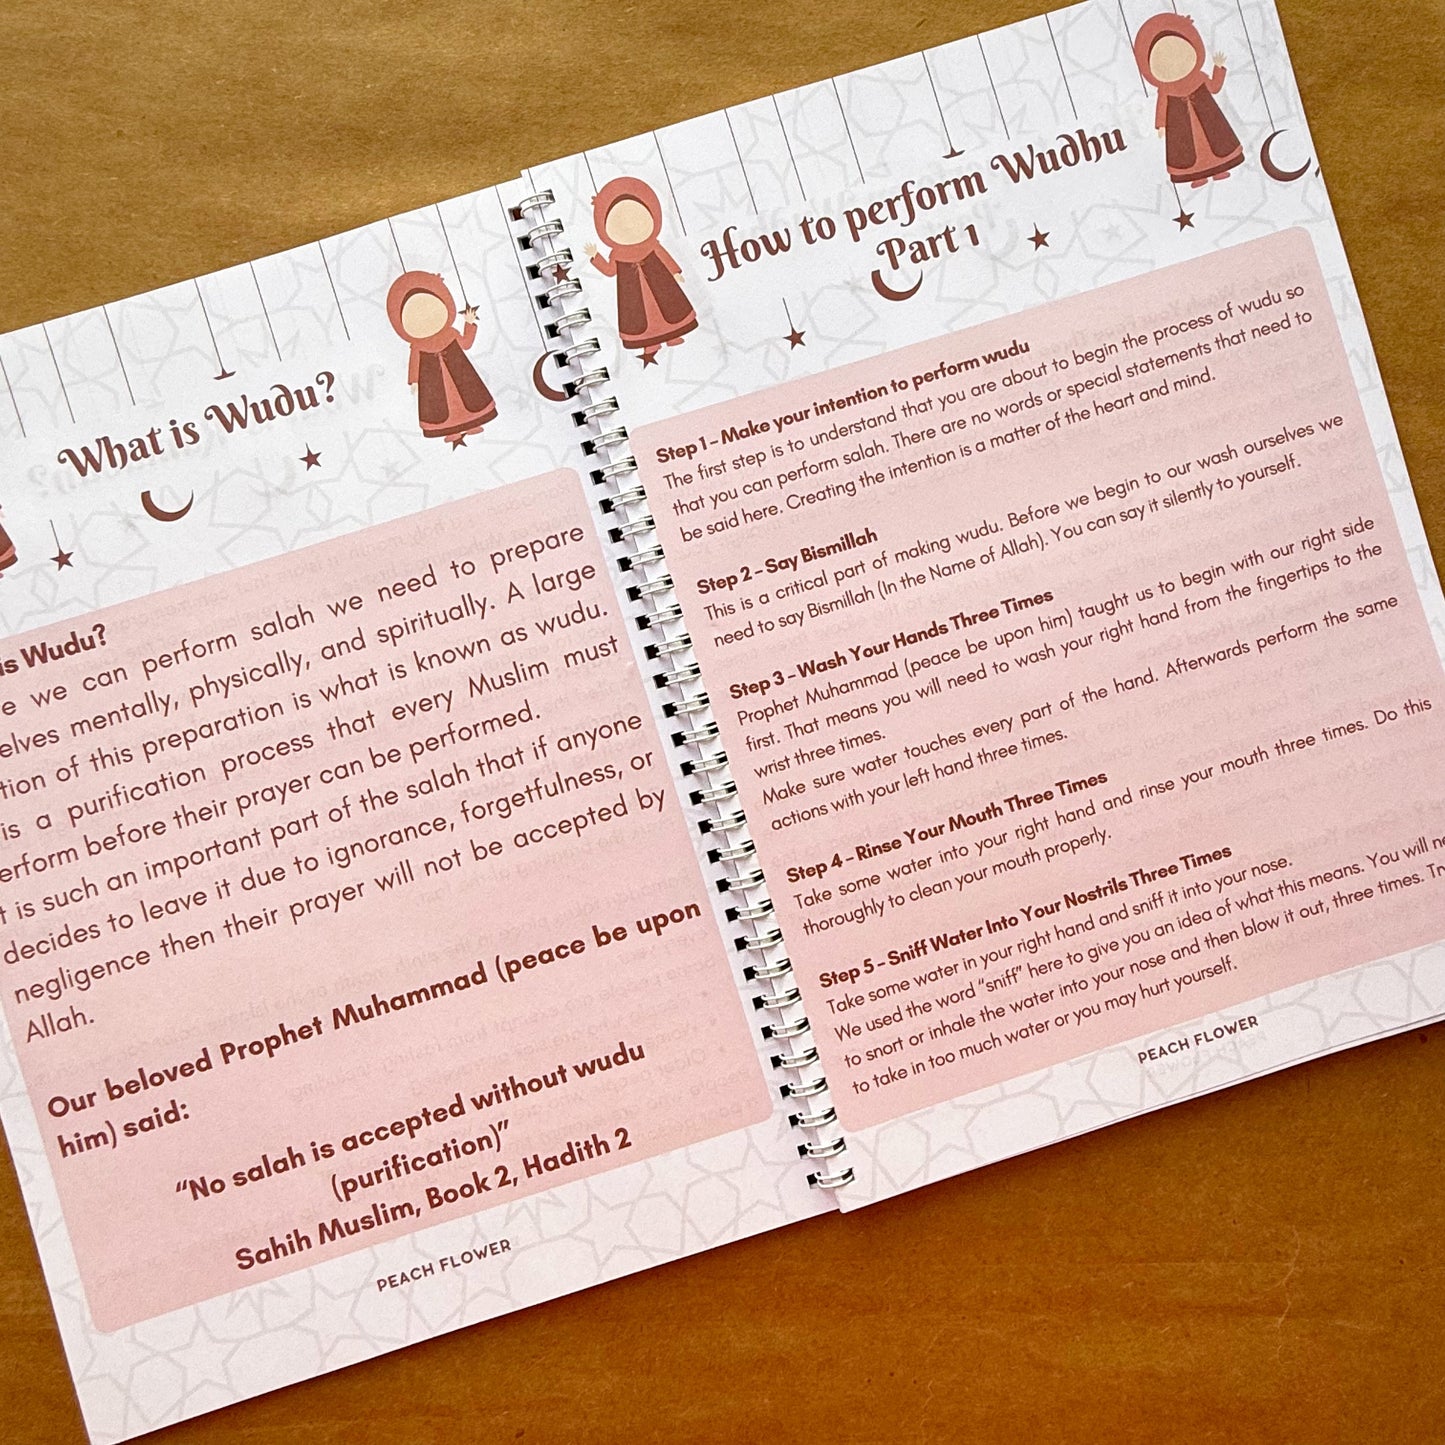 What is Wudu?
is Wudu?
we can perform salah we need to prepare
mentally, physically, and spiritually. A large
of this preparation is what is known as wudu.
is a purification process that every Muslim must
before their prayer can be performed.
is such an important part of the salah that if anyone
decides to leave it due to ignorance, forgetfulness, or
negligence then their prayer will not be accepted by
Allah.
Our beloved Prophet Muhammad (peace be upon
him) said:
“No salah is accepted without wudu
(purification)”
Sahih Muslim, Book 2, Hadith 2
PEACH FLOWER
How to perform Wudhu
Part 1
Step 1 – Make your intention to perform wudu
The first step is to understand that you are about to begin the process of wudu so
that you can perform salah. There are no words or special statements that need to
be said here. Creating the intention is a matter of the heart and mind.
Step 2 – Say Bismillah
This is a critical part of making wudu. Before we begin to our wash ourselves we
need to say Bismillah (In the Name of Allah). You can say it silently to yourself.
Step 3 – Wash Your Hands Three Times
Prophet Muhammad (peace be upon him) taught us to begin with our right side
first. That means you will need to wash your right hand from the fingertips to the
wrist three times.
Make sure water touches every part of the hand. Afterwards perform the same
actions with your left hand three times.
Step 4 – Rinse Your Mouth Three Times
Take some water into your right hand and rinse your mouth three times. Do this
thoroughly to clean your mouth properly.
Step 5 – Sniff Water Into Your Nostrils Three Times
Take some water in your right hand and sniff it into your nose.
We used the word “sniff” here to give you an idea of what this means. You will
to snort or inhale the water into your nose and then blow it out, three times.
to take in too much water or you may hurt yourself.
PEACH FLOWER